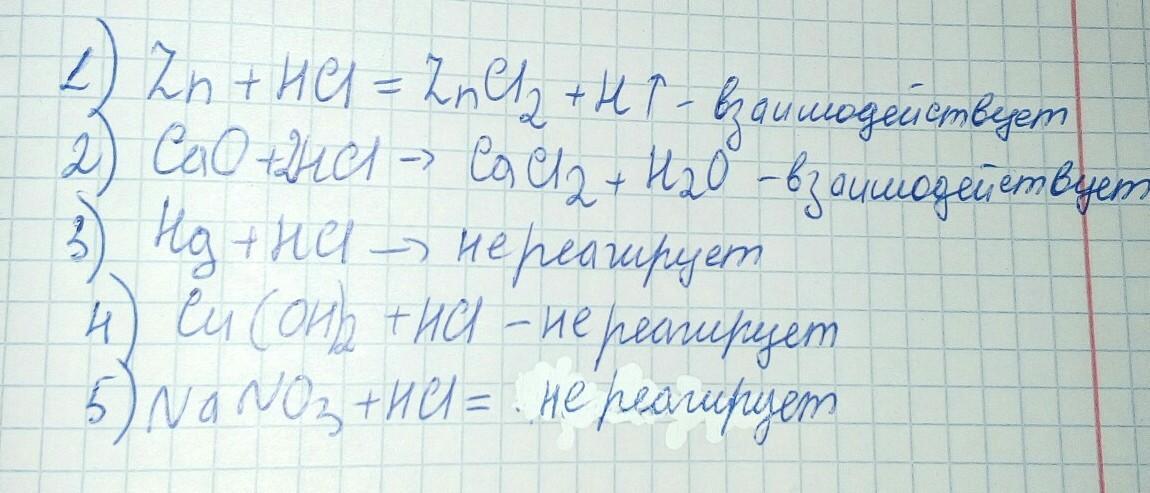 1) Zn + HCl = ZnCl2 + H↑ - взаимодействует
2) CaO + 2HCl → CaCl2 + H2O - взаимодействует
3) Hg + HCl → не реагирует
4) Cu(OH)2 + HCl - не реагирует
5) NaNO3 + HCl = не реагирует